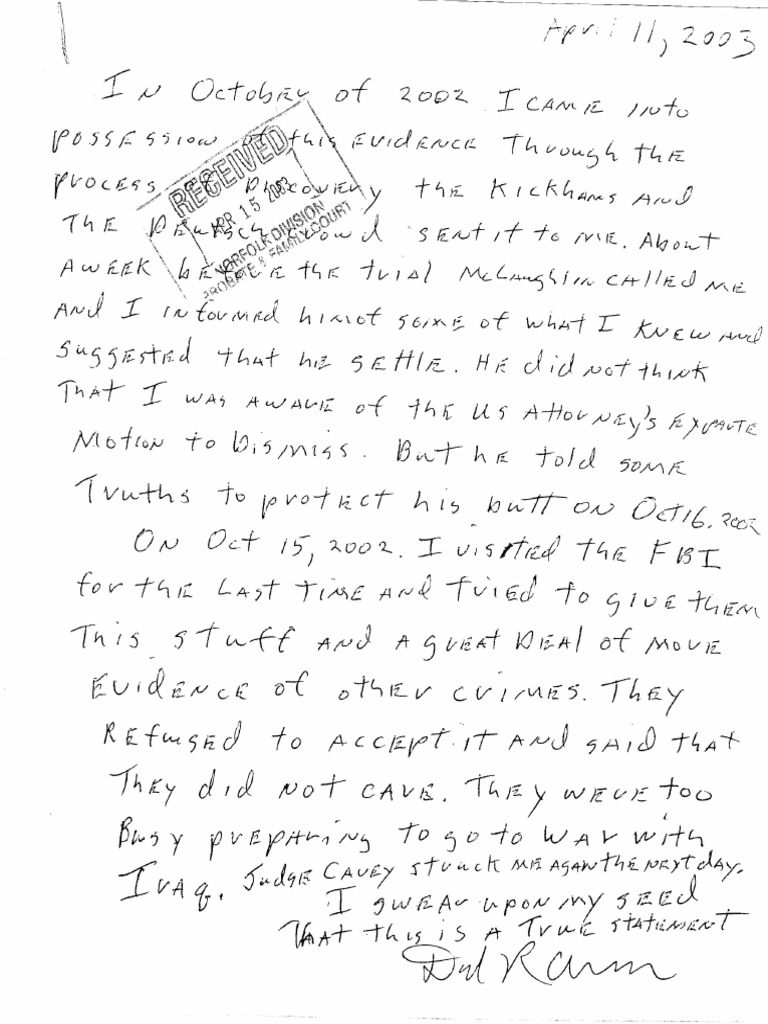 April 11, 2003
In October of 2002 I came into
possession of this evidence through the
process of Discovery the Kickhams and
The Deutsch crowd sent it to me. About
a week before the trial McLaughlin called me
and I informed him of some of what I knew and
suggested that he settle. He did not think
that I was aware of the US Attorney's Exparte
Motion to Dismiss. But he told some
Truths to protect his butt on Oct 16, 2002
On Oct 15, 2002. I visited the FBI
for the last time and tried to give them
this stuff and a great deal of more
evidence of other crimes. They
refused to accept it and said that
they did not care. They were too
Busy preparing to go to war with
Iraq. Judge Carey struck me again the next day.
I swear upon my seed
that this is a true statement
RECEIVED
APR 15 2003
NORFOLK DIVISION
PROBATE & FAMILY COURT